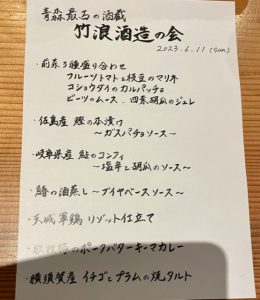 青森最古の酒蔵
竹浪酒造の会
2023.6.11 (sun)
・前菜3種盛り合わせ
フルーツトマトと枝豆のマリネ
コショウダイのカルパッチョ
ビーツのムース、四葉胡瓜のジュレ
・佐島産 鰹の本漬け
～ガスパチョソース～
・岐阜県産 鮎のコンフィ
～塩辛と胡瓜のソース～
・鰆の酒蒸し～ブイヤベースソース～
・天城軍鶏 リゾット仕立て
のポークバターキーマカレー
・横須賀産 イチゴとプラムの焼タルト